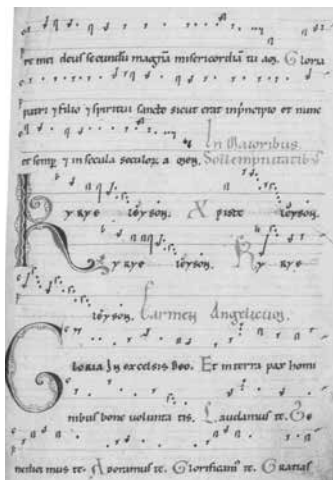 re mei deus secundū magnā misericordiā tu aoȝ. Gloria
patri ⁊ filio ⁊ spiritui sancto sicut erat inprincipio et nunc
In Maioribus
et semꝑ ⁊ in secula seculoꝝ a oeoȝ. Sollempnitatibus
K y rye leẏsoȝ. X piste leẏsoȝ.
K y rye leẏsoȝ. K y rye
leẏsoȝ. Carmen Angelicuȝ.
Gloria In excelsis Deo. Et in terra pax homi
nibus bone volunta tis. Laudamus te. Be
nedici mus te. Adoramus te. Glorificam⁹ te. Gratias